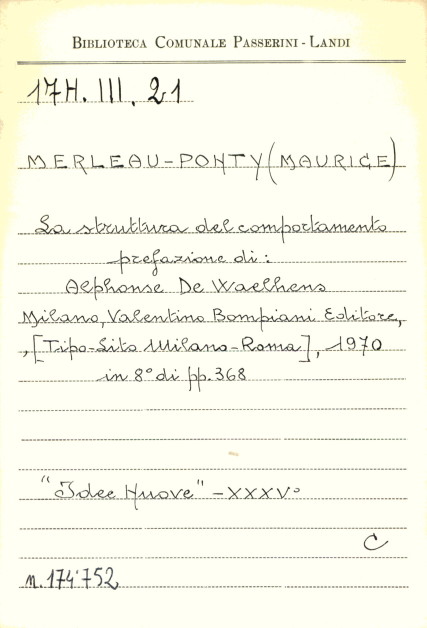 BIBLIOTECA COMUNALE PASSERINI - LANDI
17H. III. 21
MERLEAU-PONTY (MAURICE)
La struttura del comportamento
prefazione di:
Alphonse De Waelhens
Milano, Valentino Bompiani Editore,
, [Tipo-Lito Milano-Roma], 1970
in 8° di pp. 368
"Idee Nuove" - XXXV°
C
n. 174'752